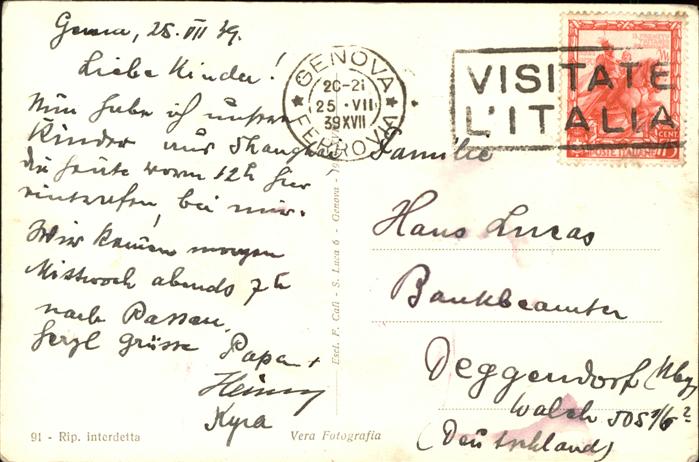 Genova, 25. VII 39.
Liebe Kinder!
Nun habe ich unsere
Kinder aus Shanghai
die heute vorm 12h hier
eintrafen, bei mir.
Wir kommen morgen
Mittwoch abends 7h
nach Passau.
Herzl Grüsse Papa +
Heinny
Kyra
91 - Rip. interdetta
Vera Fotografia
Esel. F. Calì - S. Luca 6 - Genova
GENOVA
20-21
25 · VII
39 XVII
FERROVIA
VISITATE
L'ITALIA
CENT.
75
POSTE ITALIANE
Familie
Hans Lucas
Bankbeamter
Deggendorf
(Deutschland)